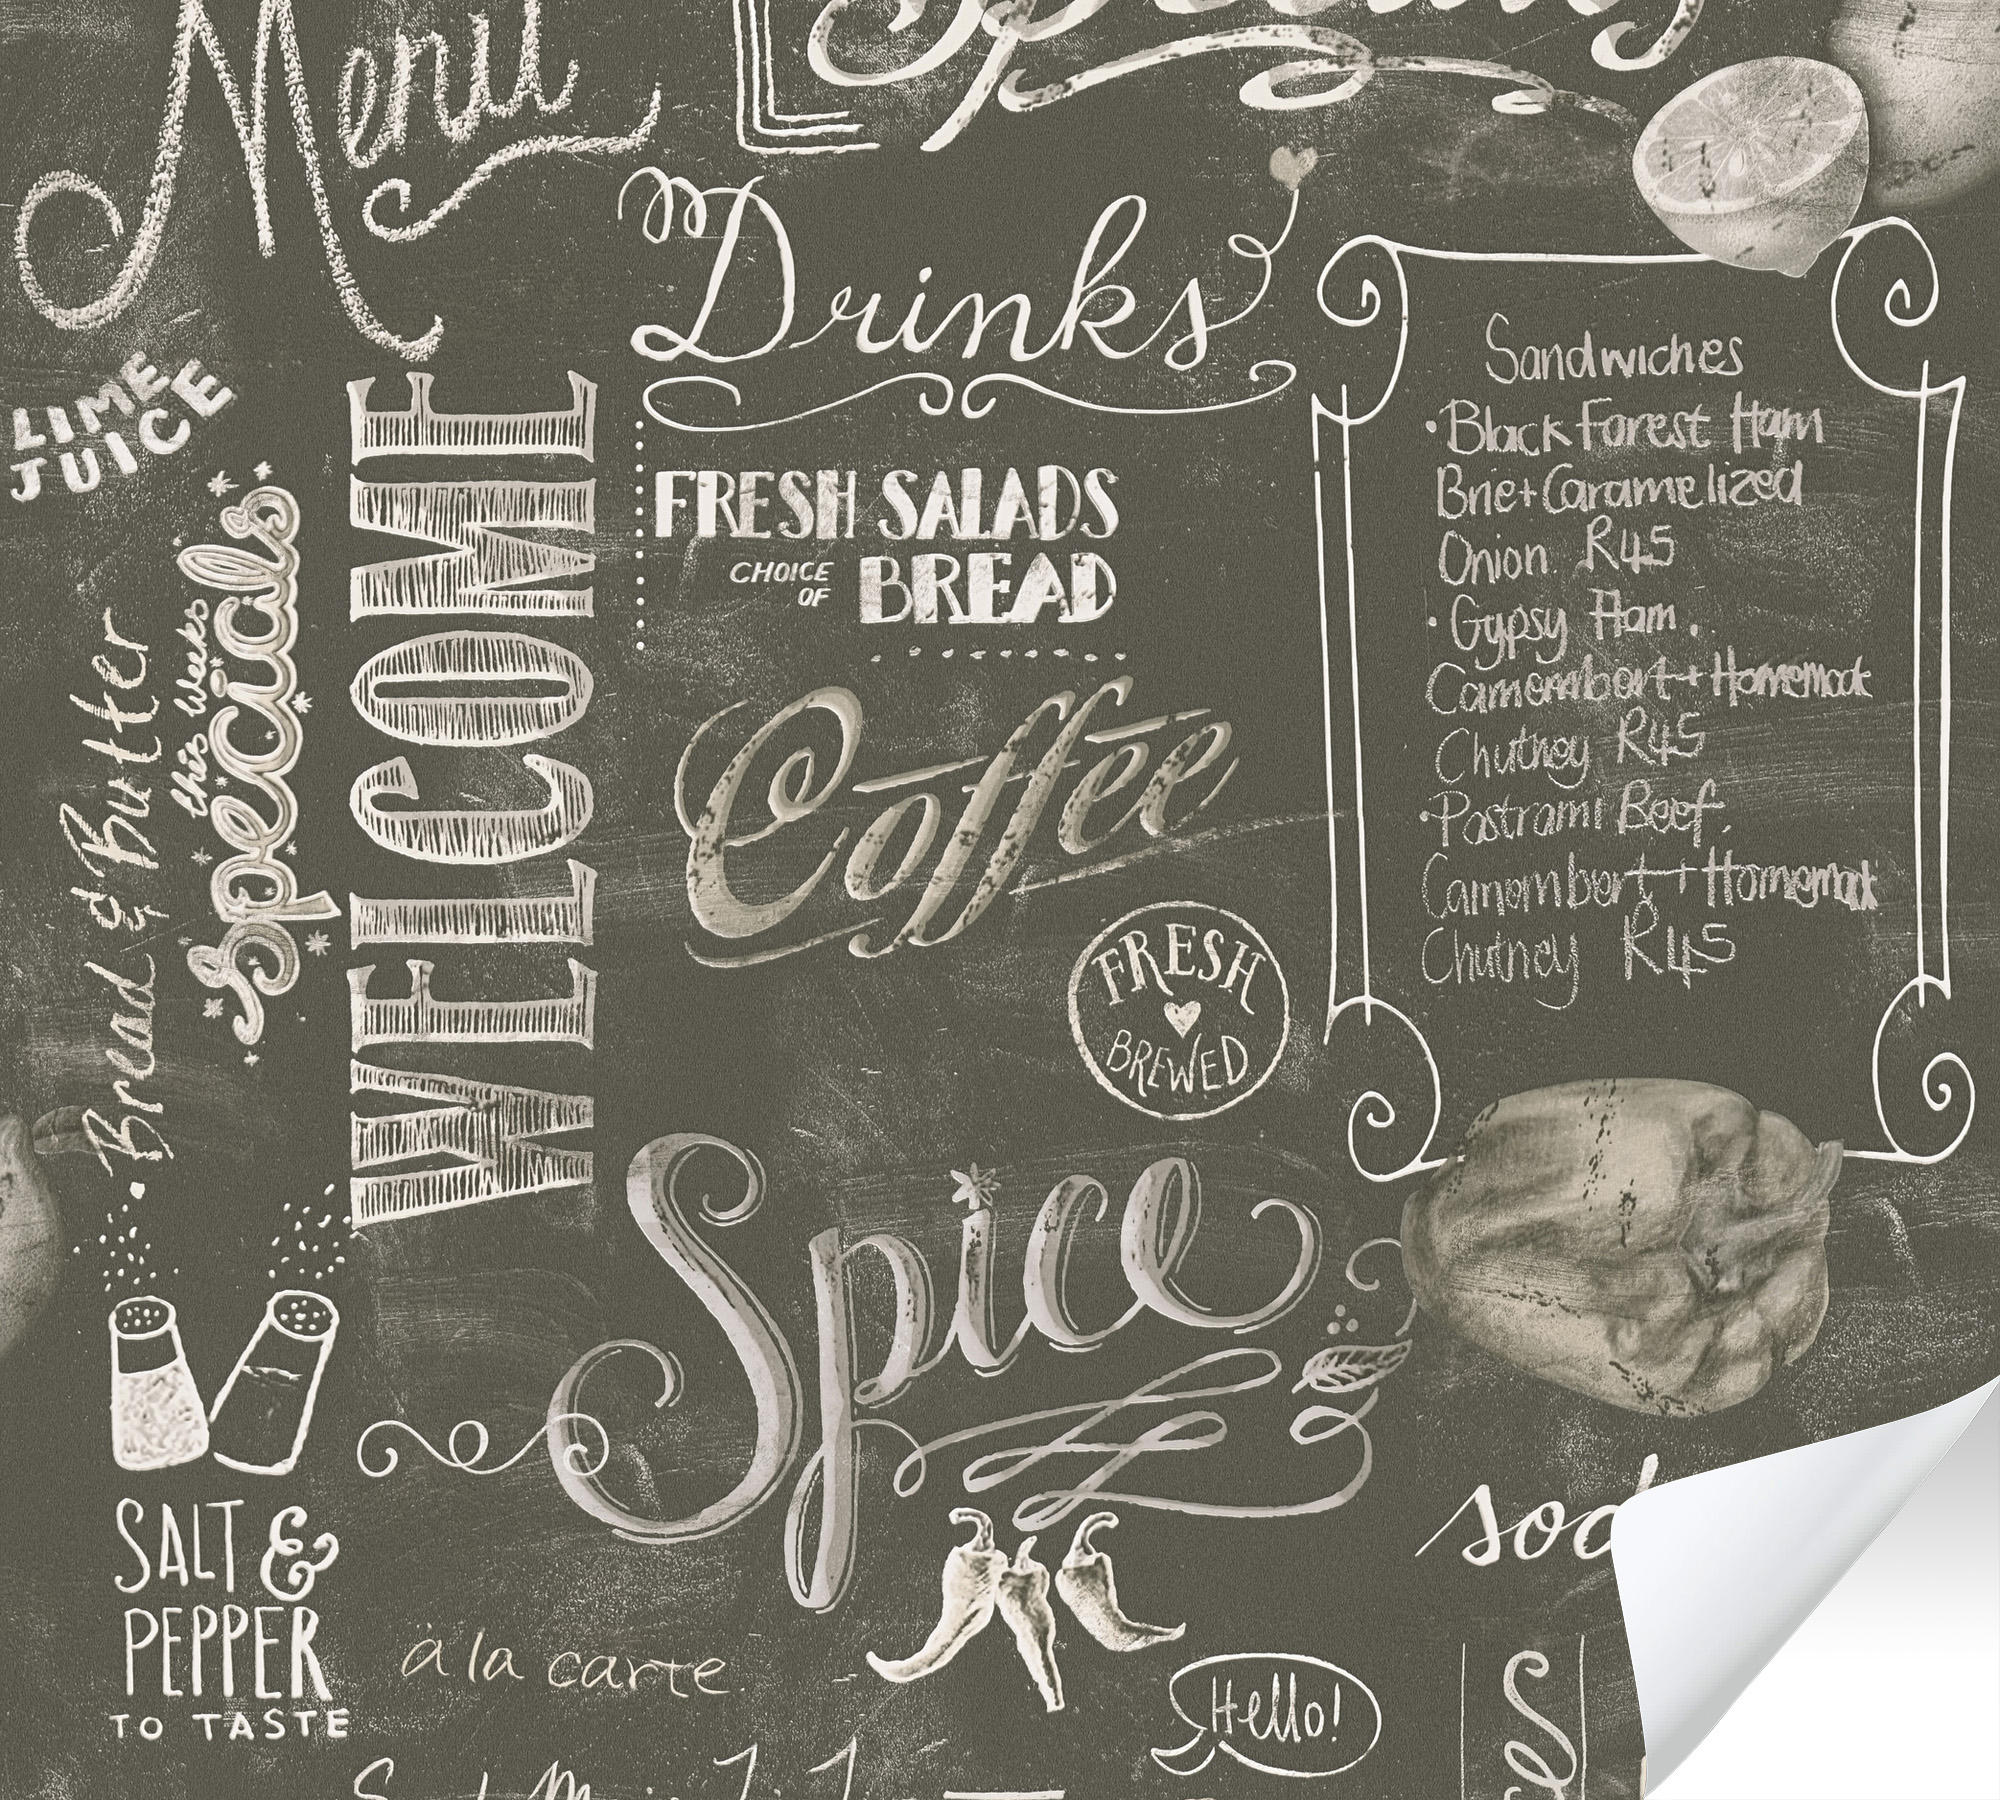 Menu
Drinks
LIME
JUICE
WELCOME
this Weeks
Specials
Bread & Butter
FRESH SALADS
CHOICE
OF
BREAD
Coffee
FRESH
BREWED
Sandwiches
• Black Forest Ham
Brie + Caramelized
Onion R45
• Gypsy Ham.
Camembert + Homemade
Chutney R45
• Pastrami Beef.
Camembert + Homemade
Chutney R45
Spice
SALT &
PEPPER
TO TASTE
a la carte.
Hello!